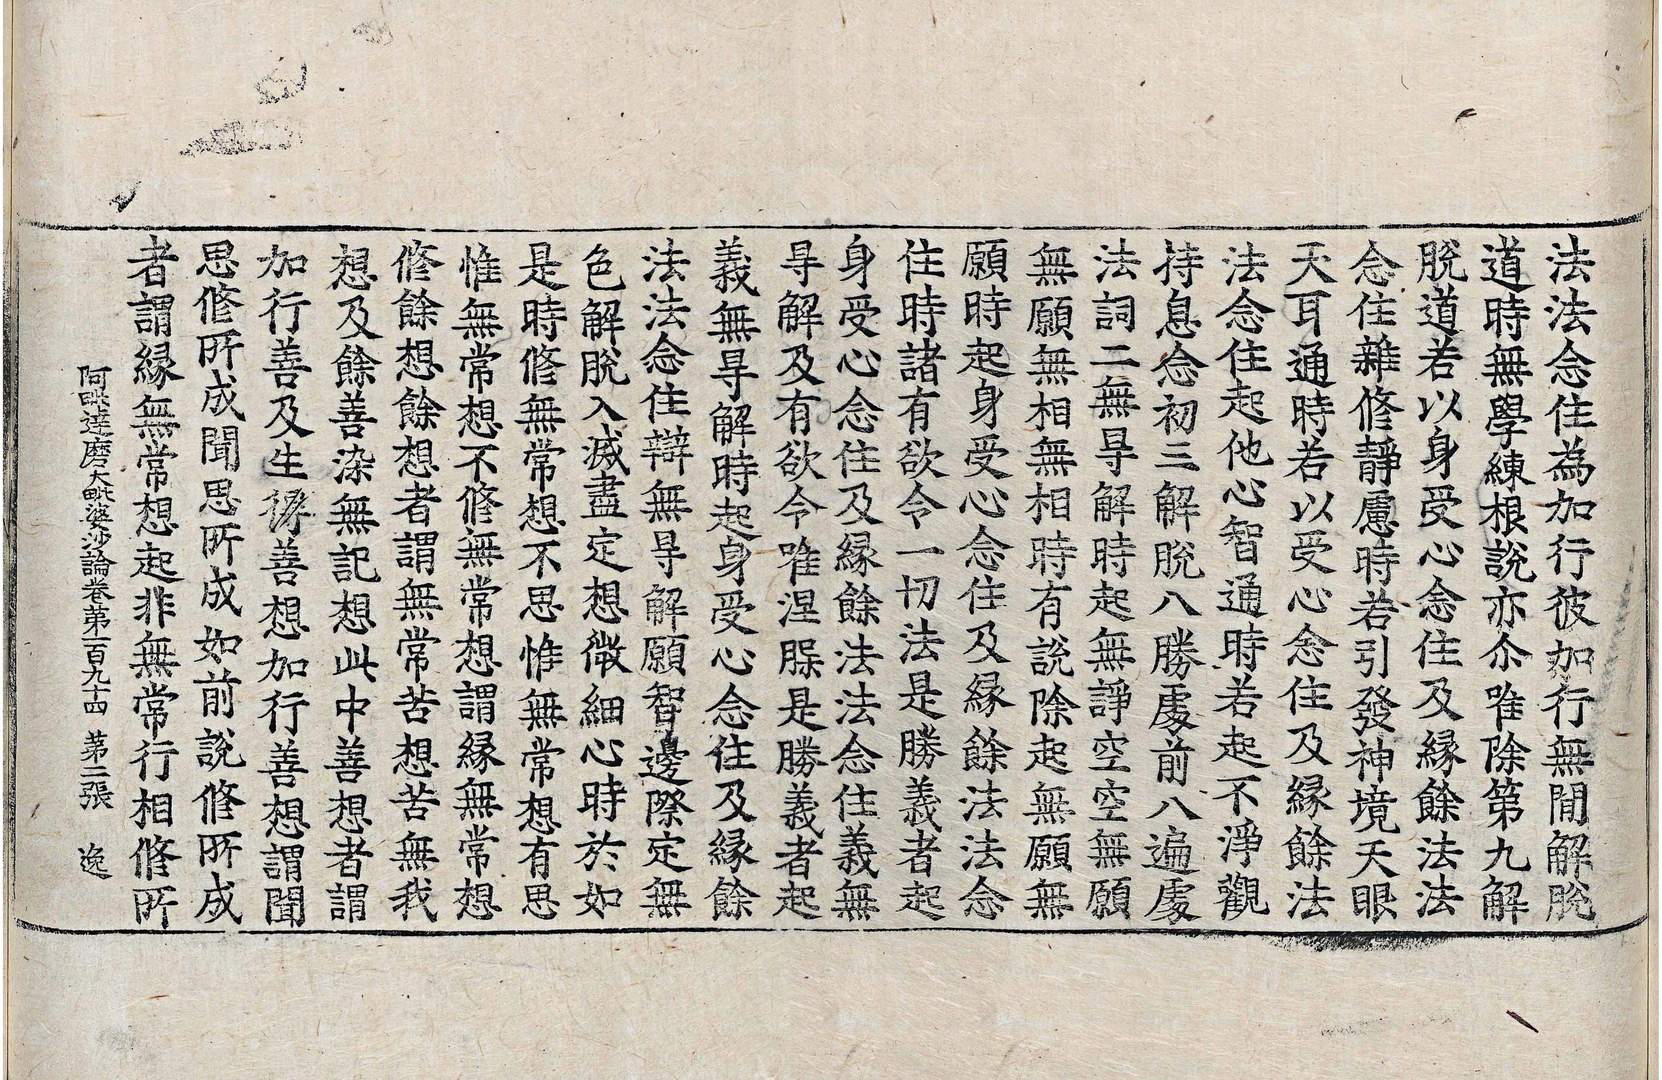 法法念住為加行彼加行無間解脫
道時無學練根說亦尒唯除第九解
脫道若以身受心念住及緣餘法法
念住雜修靜慮時若引發神境天眼
天耳通時若以受心念住及緣餘法
法念住起他心智通時若起不淨觀
持息念初三解脫八勝處前八遍處
法詞二無㝵解時起無諍空空無願
無願無相無相時有說除起無願無
願時起身受心念住及緣餘法法念
住時諸有欲令一切法是勝義者起
身受心念住及緣餘法法念住義無
㝵解及有欲令唯涅槃是勝義者起
義無㝵解時起身受心念住及緣餘
法法念住辯無㝵解願智邊際定無
色解脫入滅盡定想微細心時於如
是時修無常想不思惟無常想有思
惟無常想不修無常想謂緣無常想
修餘想餘想者謂無常苦想苦無我
想及餘善染無記想此中善想者謂
加行善及生得善想加行善想謂聞
思修所成聞思所成如前說修所成
者謂緣無常想起非無常行相修所
阿毗達磨大毗婆沙論卷第一百九十四 第二張 逸